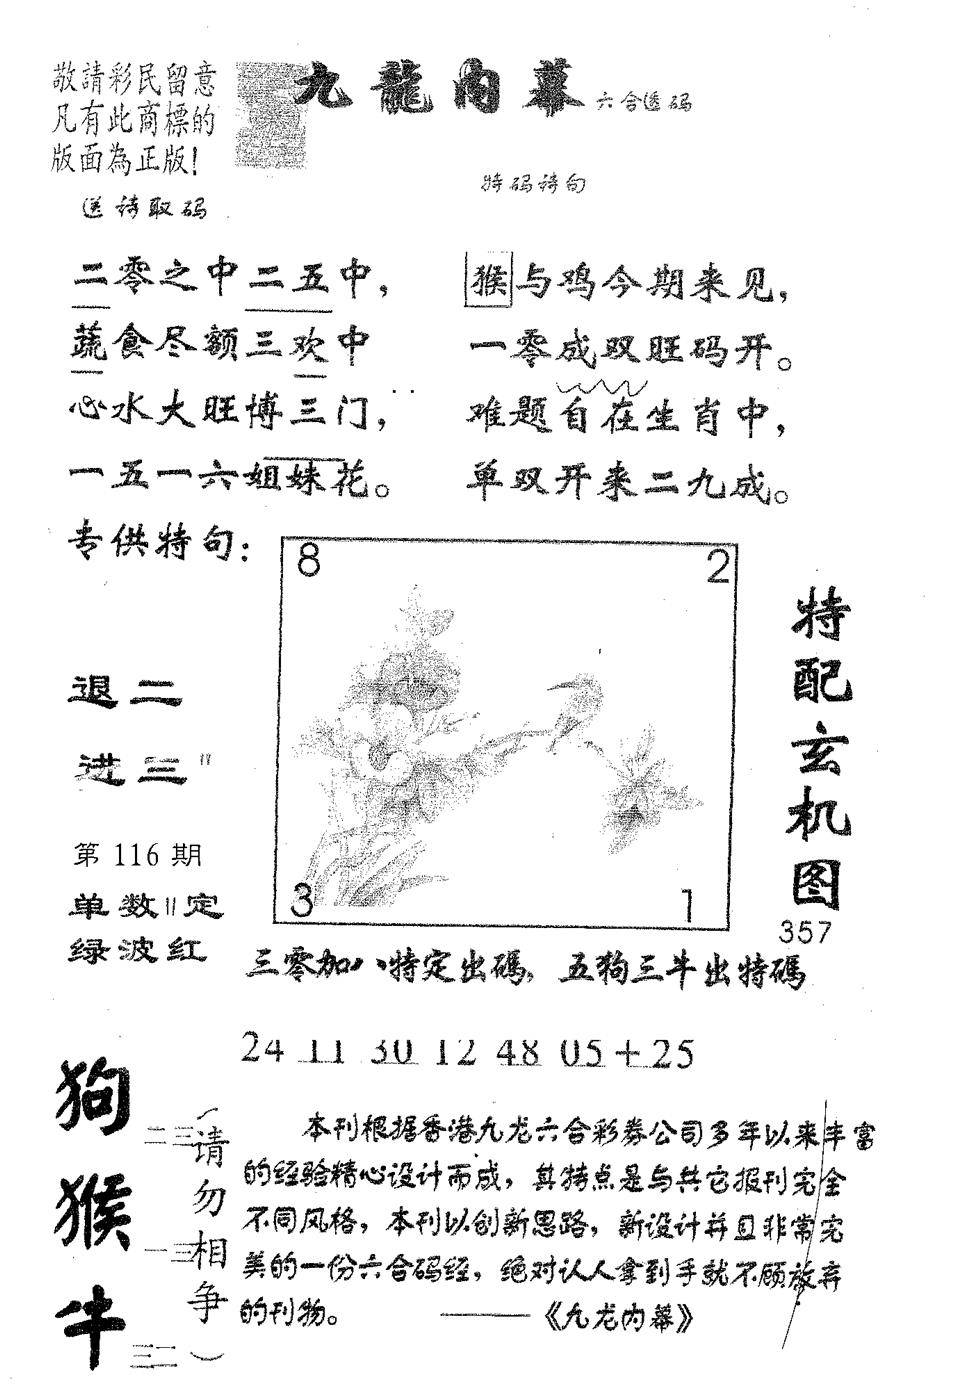 敬請彩民留意
凡有此商標的
版面為正版!
九龍内幕
六合透码
送诗取码
特码诗句
二零之中二五中，
蔬食尽额三欢中
心水大旺博三门，
一五一六姐妹花。
猴与鸡今期来见，
一零成双旺码开。
难题自在生肖中，
单双开来二九成。
专供特句：
退二
进三"
第116期
单数"定
绿波红
8
2
3
1
特配玄机图
357
三零加八特定出碼，五狗三牛出特碼
24 11 30 12 48 05+25
狗
二三
猴
一三
牛
三二
（请勿相争）
本刊根据香港九龙六合彩券公司多年以来丰富
的经验精心设计而成，其特点是与其它报刊完全
不同风格，本刊以创新思路，新设计并且非常完
美的一份六合码经，绝对认人拿到手就不顾放弃
的刊物。 ——《九龙内幕》